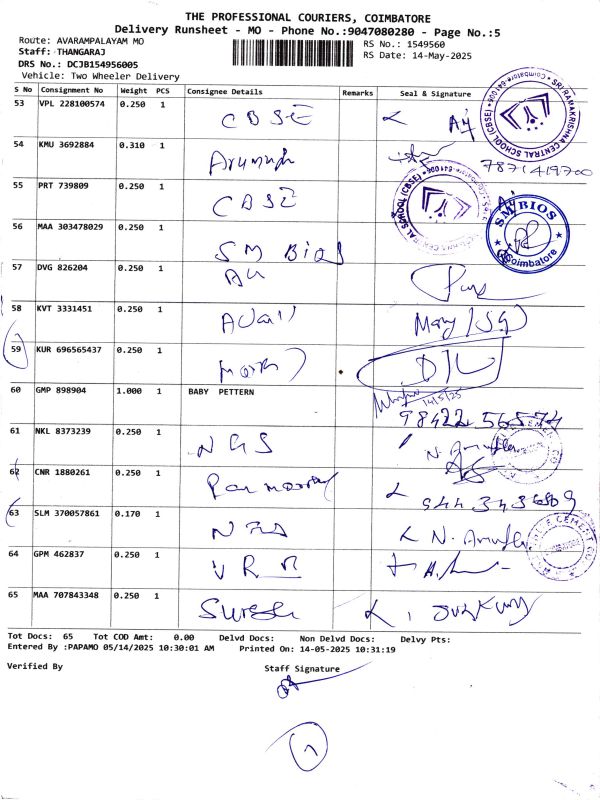 THE PROFESSIONAL COURIERS, COIMBATORE
Delivery Runsheet - MO - Phone No.:9047080280 - Page No.:5
Route: AVARAMPALAYAM MO
RS No.: 1549560
Staff: THANGARAJ
RS Date: 14-May-2025
DRS No.: DCJB154956005
Vehicle: Two Wheeler Delivery
S No Consignment No Weight PCS Consignee Details Remarks Seal & Signature
53 VPL 228100574 0.250 1 CBSE
SRI RAMAKRISHNA CENTRAL SCHOOL (CBSE)
54 KMU 3692884 0.310 1 Arumugh
7871419700
55 PRT 739809 0.250 1 CBSE
56 MAA 303478029 0.250 1 SM BIOS
SM BIOS
Coimbatore
57 DVG 826204 0.250 1
58 KVT 3331451 0.250 1
59 KUR 696565437 0.250 1
60 GMP 898904 1.000 1 BABY PETTERN
14/5/25
98422 56574
61 NKL 8373239 0.250 1 NGS
62 CNR 1880261 0.250 1
9443436809
63 SLM 370057861 0.170 1
64 GPM 462837 0.250 1 VRR
65 MAA 707843348 0.250 1 Suresh
Tot Docs: 65 Tot COD Amt: 0.00 Delvd Docs: Non Delvd Docs: Delvy Pts:
Entered By :PAPAMO 05/14/2025 10:30:01 AM Printed On: 14-05-2025 10:31:19
Verified By Staff Signature